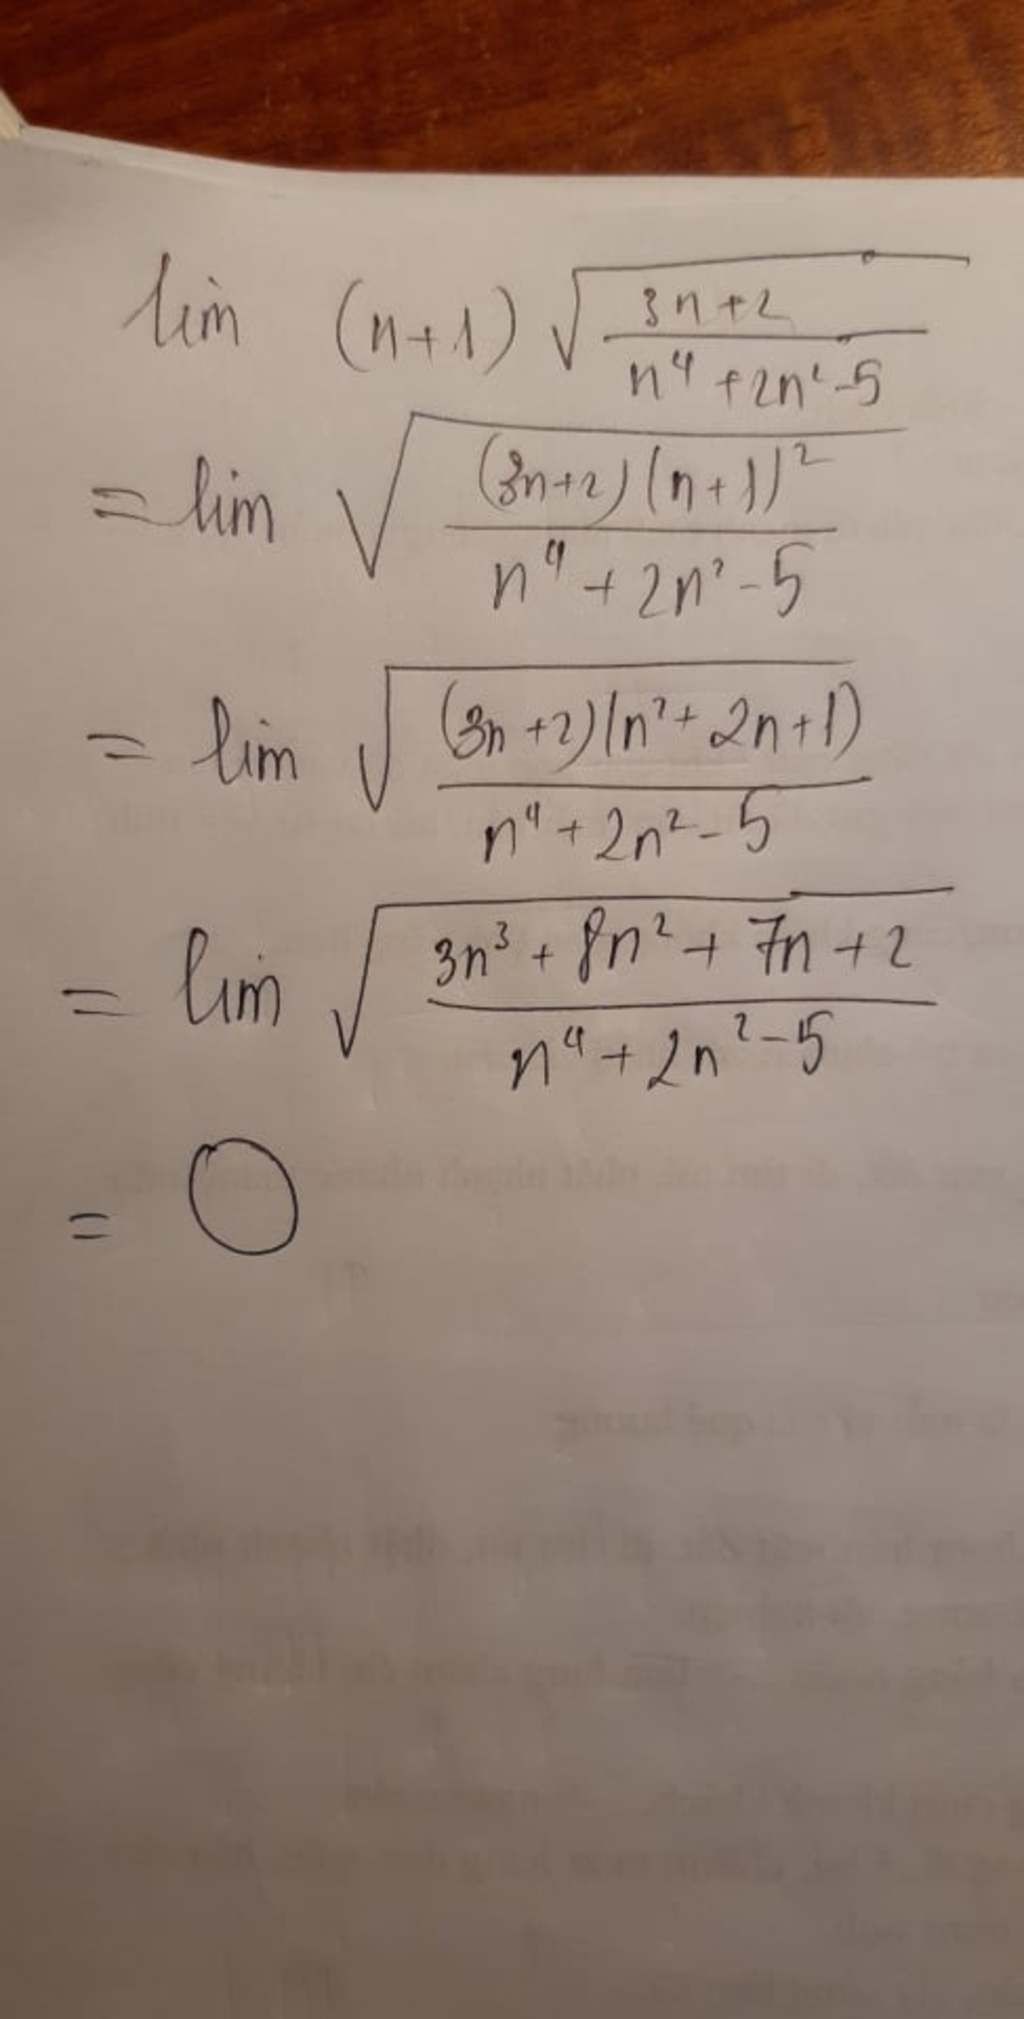 lim (n+1) √((3n+2)/(n⁴+2n²-5))
= lim √((3n+2)(n+1)²/(n⁴+2n²-5))
= lim √((3n+2)(n²+2n+1)/(n⁴+2n²-5))
= lim √((3n³+8n²+7n+2)/(n⁴+2n²-5))
= 0